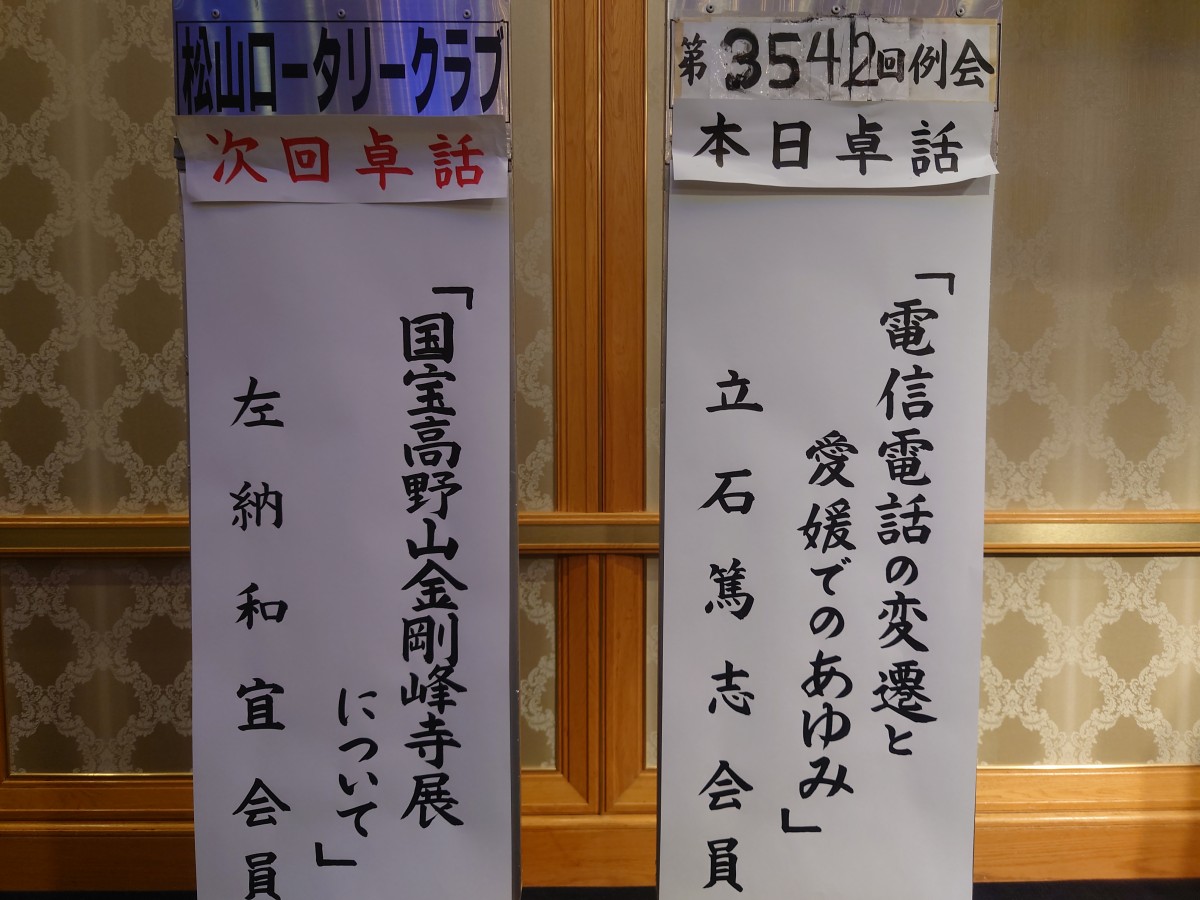 松山ロータリークラブ
次回卓話
「国宝高野山金剛峰寺展
について」
左納和宜会員
第3542回例会
本日卓話
「電信電話の変遷と
愛媛でのあゆみ」
立石篤志会員